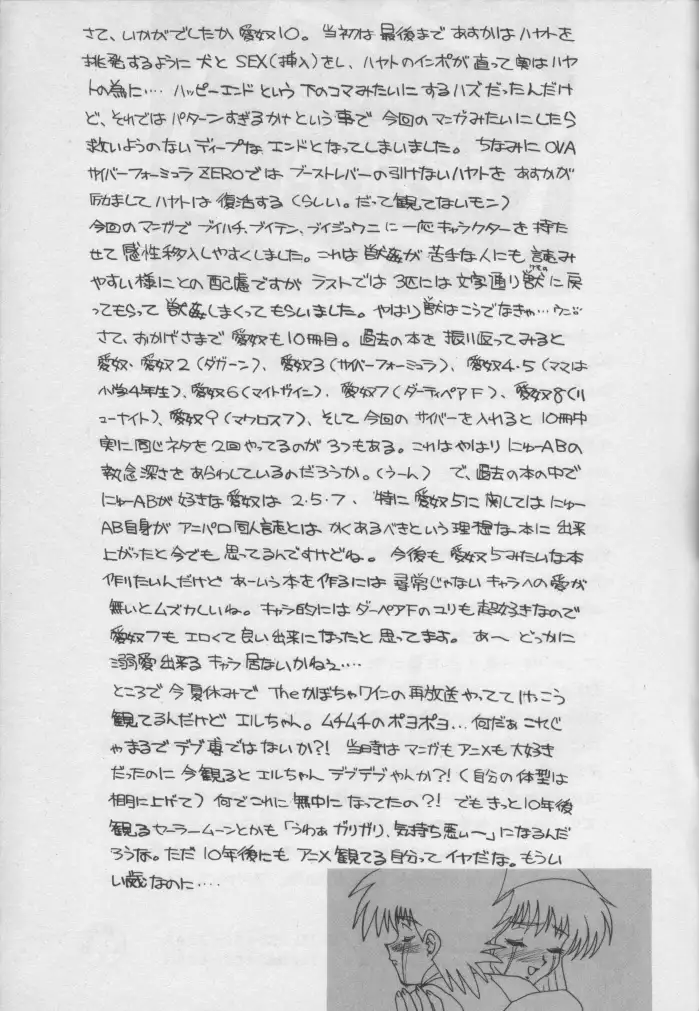 さて、いかがでしたか愛奴10。当初は最後まであすかはハヤトを
挑発するように犬とSEX(挿入)をし、ハヤトのインポが直って実はハヤ
トの為に‥‥ハッピーエンドという下のコマみたいにするハズだったんだけ
ど、それではパターンすぎるかナという事で今回のマンガみたいにしたら
救いようのないディープなエンドとなってしまいました。ちなみにOVA
サイバーフォーミュラZEROではブーストレバーの引けないハヤトをあすかが
励ましてハヤトは復活する(らしい。だって観てないモン)
今回のマンガでブイハチ、ブイテン、ブイジュウニに一応キャラクターを持た
せて感性移入しやすくしました。これは獣姦が苦手な人にも読み
やすい様にとの配慮ですがラストでは3匹には文字通り獣(ケモの)に戻
ってもらって獣姦しまくってもらいました。やはり獣はこうでなきゃ…
さて、おかげさまで愛奴も10冊目。過去の本を振り返ってみると
愛奴・愛奴2(ダガーン)、愛奴3(サイバーフォーミュラ)、愛奴4・5(ママは
小学4年生)、愛奴6(マイトガイン)、愛奴7(ダーティペアF)、愛奴8(リ
ューナイト)、愛奴9(マクロス7)、そして今回のサイバーを入れると10冊中
実に同じネタを2回やってるのが3つもある。これはやはりにゅーABの
執念深さをあらわしているのだろうか。(うーん) で、過去の本の中で
にゅーABが好きな愛奴は2・5・7、特に愛奴5に関してはにゅー
AB自身がアニパロ同人誌とはかくあるべきという理想な本に出来
上がったと今でも思ってるんですけどね。今後も愛奴5みたいな本
作りたいんだけどあーいう本を作るには尋常じゃないキャラへの愛が
無いとムズカしいね。キャラ的にはダーペアFのユリも超好きなので
愛奴7もエロくて良い出来になったと思ってます。あ〜どっかに
溺愛出来るキャラ居ないかねぇ‥‥
ところで今夏休みでTheかぼちゃワインの再放送やっててけっこう
観てるんだけどエルちゃん。ムチムチのポヨポヨ…何だぁこれじ
ゃまるでデブ専ではないか?! 当時はマンガもアニメも大好き
だったのに今観るとエルちゃんデブデブやんか?!(自分の体型は
棚に上げて)何でこれに無中になってたの?! でもきっと10年後
観るセーラームーンとかも「うわぁガリガリ、気持ち悪ぃ〜」になるんだ
ろうな。ただ10年後にもアニメ観てる自分ってイヤだな。もういい
い歳なのに‥‥